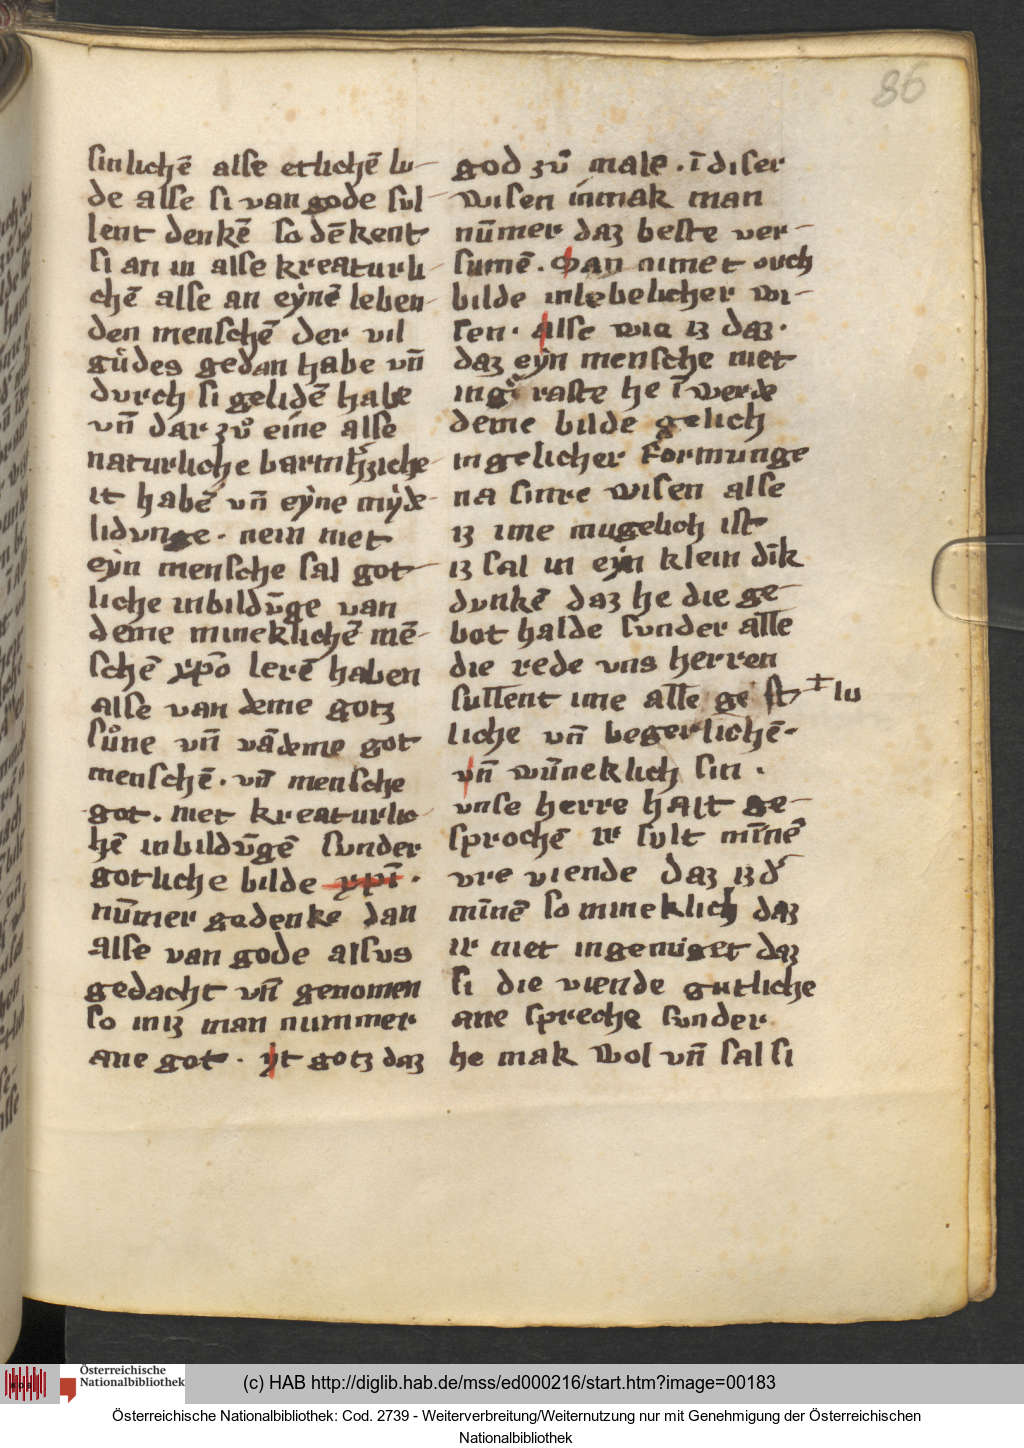 86
sinlichē alse etlichē lu-
de alse si van gode sul-
lent denkē so dēkent
si an in alse kreaturli-
chē alse an eẏnē leben-
den menschē der vil
gůdes gedan habe vn̄
durch si gelidē habe
vn̄ dar zů eíne alse
naturliche barmh̄ziche-
it habē vn̄ eẏne mẏde-
lidunge. nein niet
eẏn mensche sal got-
liche inbildūge van
deme mineklichē mē-
schē xp̄o lerē haben
alse van deme gotz
sůne vn̄ vā deme got
menschē. vn̄ mensche
got. niet kreaturlic-
hē inbildūgē sunder
gotliche bilde xp̄i.
nūmer gedenke dan
alse van gode alsus
gedacht vn̄ genomen
so in iz man nummer
ane got. ẏt gotz daz
god zů male. ī diser
wisen in mak man
nūmer daz beste ver-
sumē. Man nimet ouch
bilde in lebelicher wi-
sen. alse wia iz daz.
daz eẏn mensche niet
in gͦ raste he ī werde
deme bilde gelich
in gelicher formunge
na sinre wisen alse
iz ime mugelich ist
iz sal in eẏn klein dīk
dunkē daz he die ge-
bot halde sunder alle
die rede vns herren
sullent ime alle geist
‡ lu
liche vn̄ begerlichē-
vn̄ wūneklich sin.
vnse herre hait ge-
sprochē ir sult mīnē
vre viende daz iz d͛
mīnē so mineklich daz
ir niet in genuget daz
si die viende gutliche
ane spreche sunder
he mak wol vn̄ sal si
Österreichische
Nationalbibliothek
(c) HAB http://diglib.hab.de/mss/ed000216/start.htm?image=00183
Österreichische Nationalbibliothek: Cod. 2739 - Weiterverbreitung/Weiternutzung nur mit Genehmigung der Österreichischen
Nationalbibliothek